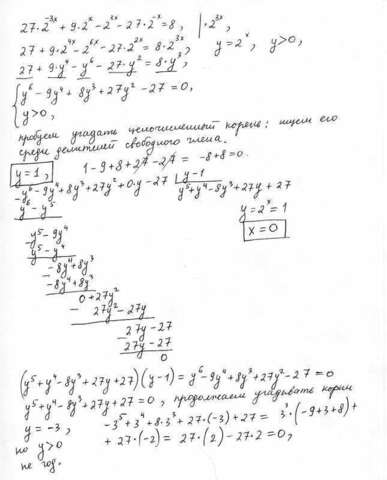 27·2^{-3x} + 9·2^x - 2^{3x} - 27·2^{-x} = 8, | ·2^{3x}
27 + 9·2^{4x} - 2^{6x} - 27·2^{2x} = 8·2^{3x}, y = 2^x, y>0,
27 + 9·y^4 - y^6 - 27·y^2 = 8·y^3,
{ y^6 - 9y^4 + 8y^3 + 27y^2 - 27 = 0,
y>0,
пробуем угадать целочисленный корень: ищем его
среди делителей свободного члена.
y = 1, 1 - 9 + 8 + 27 - 27 = -8+8=0.
y^6 - 9y^4 + 8y^3 + 27y^2 + 0·y - 27 | y-1
y^6 - y^5 y^5 + y^4 - 8y^3 + 27y + 27
y^5 - 9y^4 y = 2^x = 1
y^5 - y^4 x = 0
-8y^4 + 8y^3
-8y^4 + 8y^3
0 + 27y^2
27y^2 - 27y
27y - 27
27y - 27
0
(y^5 + y^4 - 8y^3 + 27y + 27)(y-1) = y^6 - 9y^4 + 8y^3 + 27y^2 - 27 = 0
y^5 + y^4 - 8y^3 + 27y + 27 = 0, продолжаем угадывать корни
y = -3, -3^5 + 3^4 + 8·3^3 + 27·(-3) + 27 = 3^3·(-9+3+8) +
но y>0 + 27·(-2) = 27·(2) - 27·2 = 0,
не год.